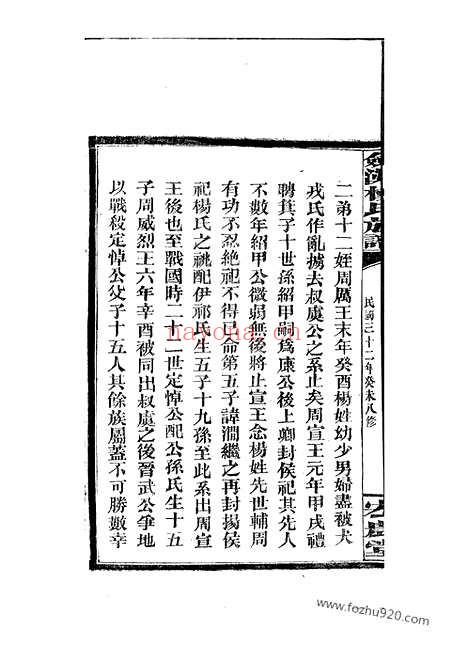 二弟十二姪周厲王末年癸酉楊姓幼少男婦盡被犬
戎氏作亂擄去叔虞公之系止矣周宣王元年甲戌禮
聘箕子十世孫紹甲嗣爲康公後上卿封侯祀其先人
不數年紹甲公微弱無後將止宣王念楊姓先世輔周
有功不忍絶祀不得已命第五子諱澗繼之再封揚侯
祀楊氏之祧配伊祁氏生五子十九孫至此系出周宣
王後也至戰國時二十二世定悼公配公孫氏生十五
子周威烈王六年辛酉被同出叔虞之後晉武公爭地
以戰殺定悼公父子十五人其餘族屬蓋不可勝數幸
楊氏族譜
民國三十二年癸未八修
堂
nayona.cn
www.fozhu920.com